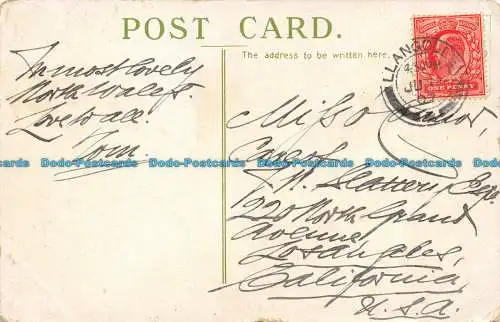 POST CARD.
The address to be written here.
In most lovely
North Wales.
Love to all.
Tom.
LLANGOLLEN
JU
ONE PENNY
Miss
Care of
Slattery Esq.
1220 North Grand
Avenue,
Los Angeles,
California,
U.S.A.
Dodo-Postcards Dodo-Postcards Dodo-Postcards Dodo-Postcards Dodo-Postcards Dodo-Postcards